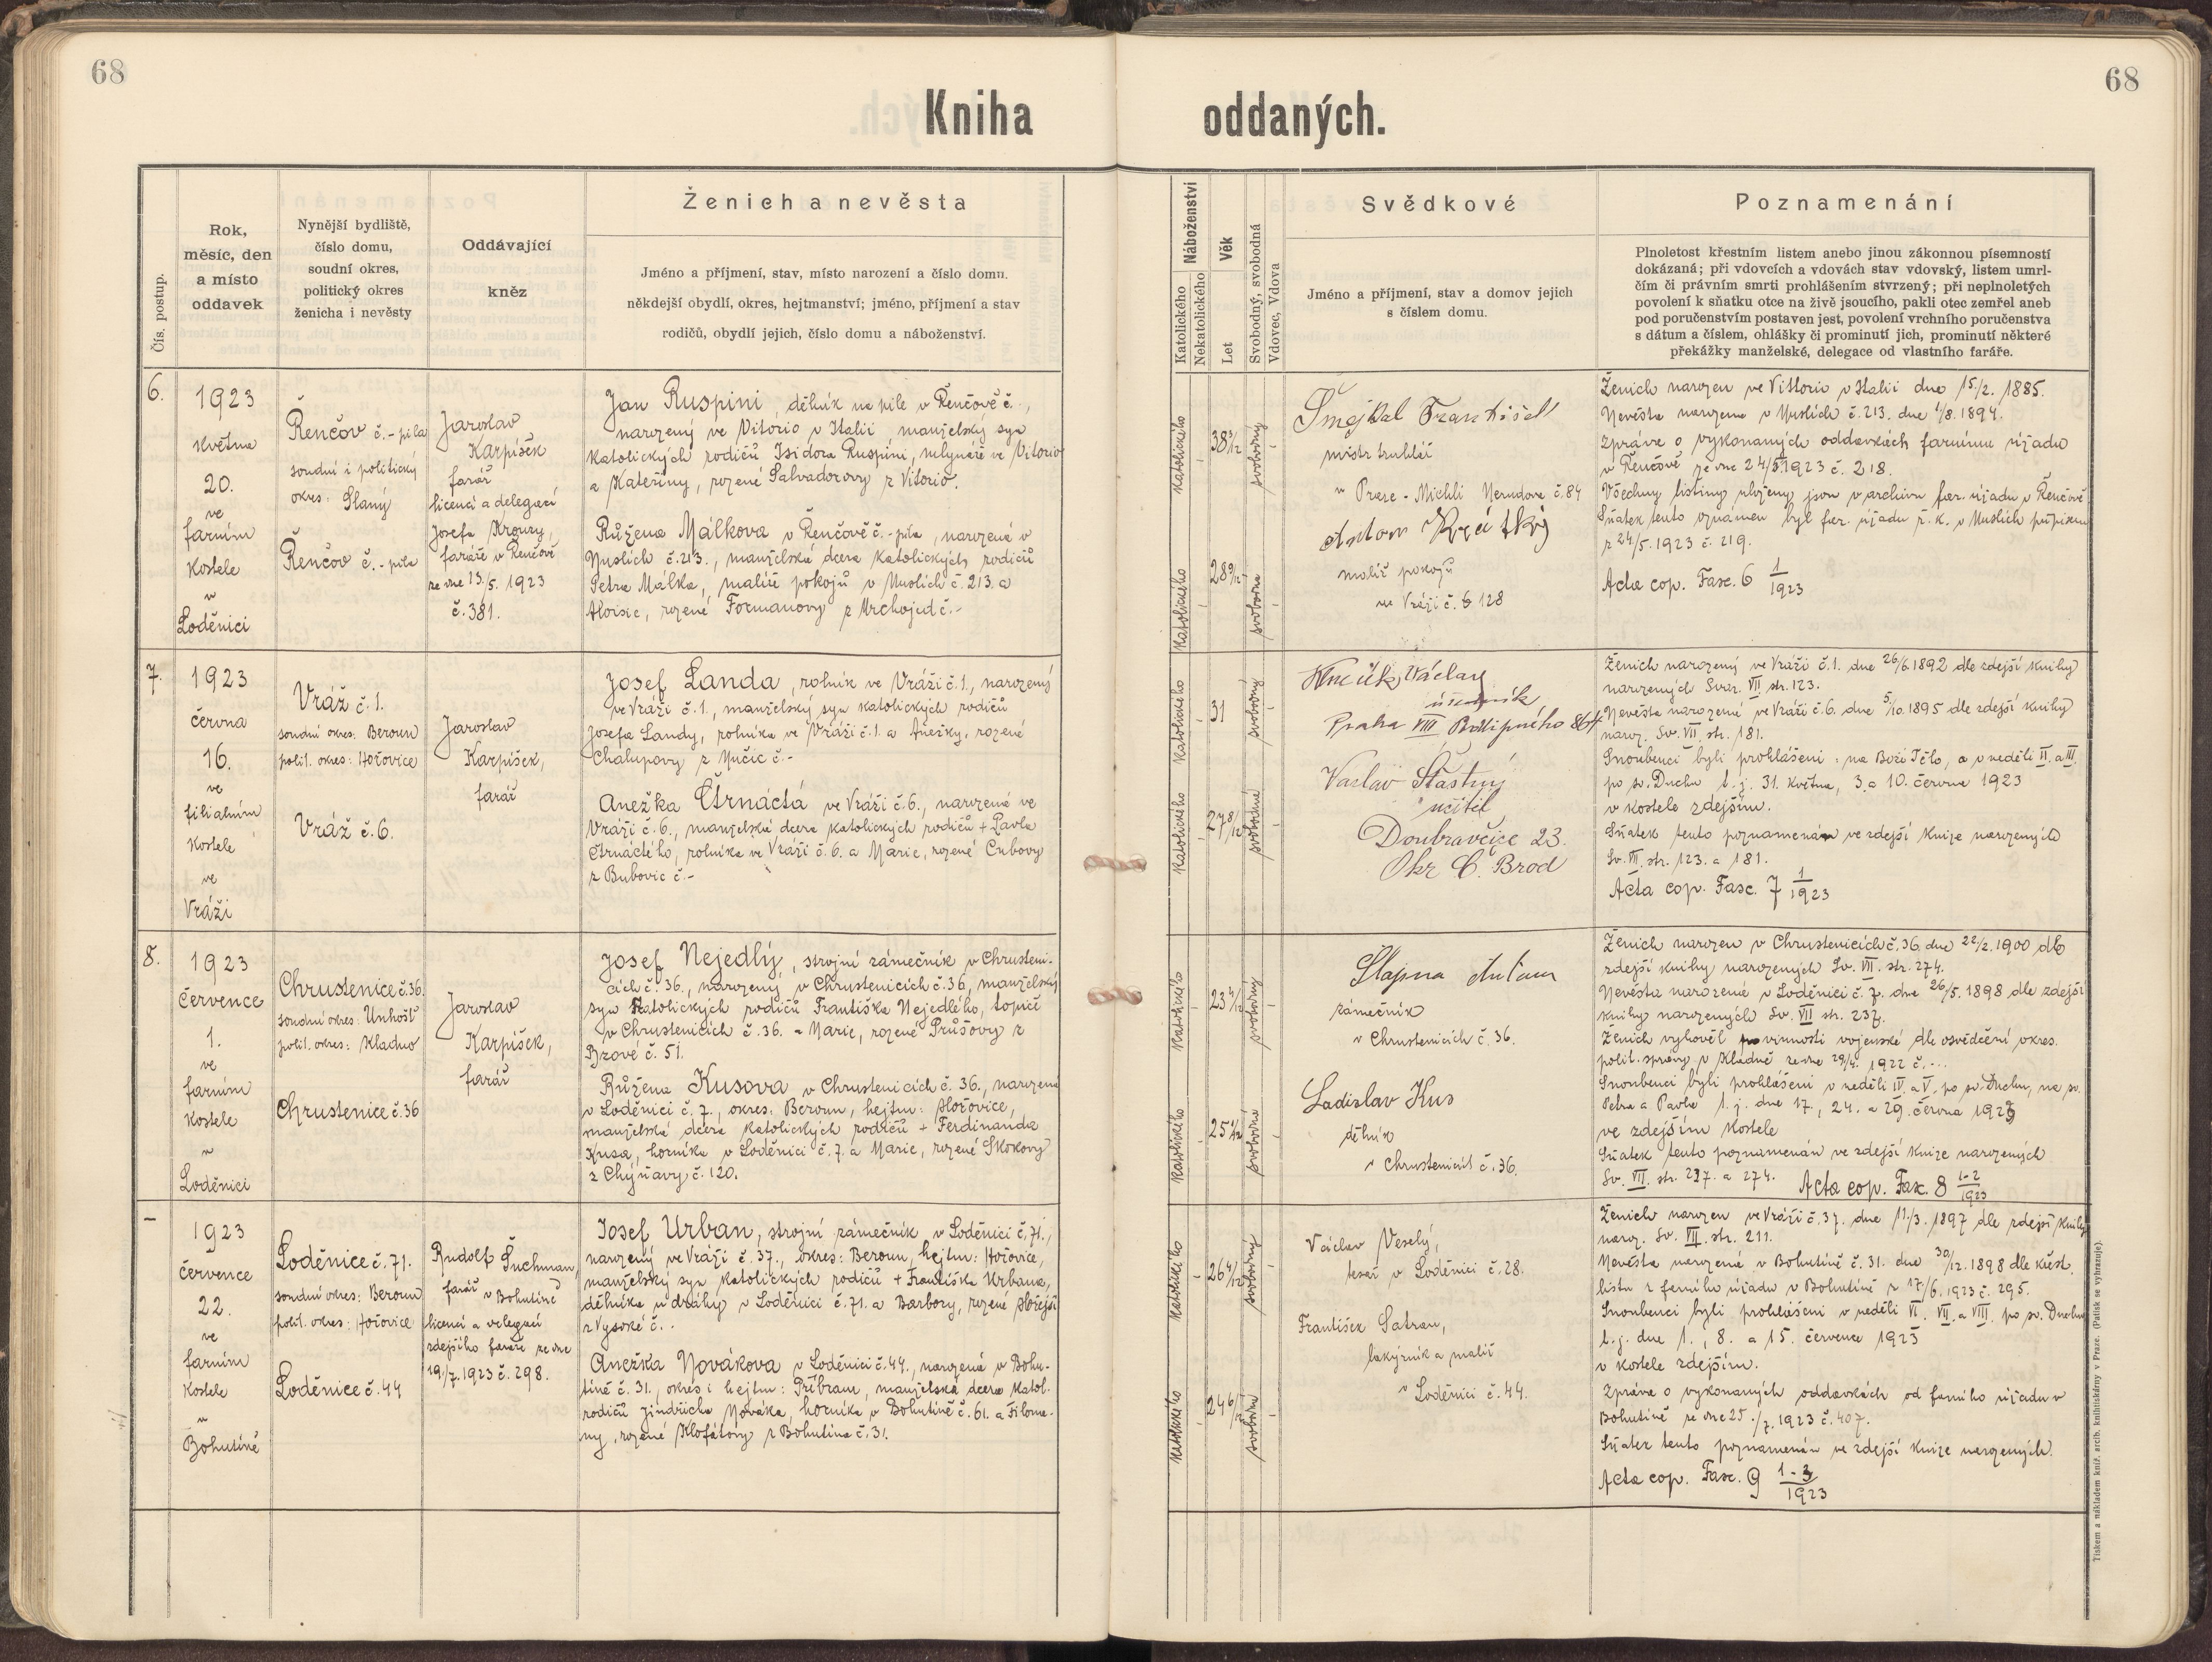 68
68
Kniha oddaných.
Čís. postup.
Rok,
měsíc, den
a místo
oddavek
Nynější bydliště,
číslo domu,
soudní okres,
politický okres
ženicha i nevěsty
Oddávající
kněz
Ženich a nevěsta
Jméno a příjmení, stav, místo narození a číslo domu.
někdejší obydlí, okres, hejtmanství; jméno, příjmení a stav
rodičů, obydlí jejich, číslo domu a náboženství.
Náboženství
Katolického
Nekatolického
Věk
Let
Svobodný, svobodná
Vdovec, Vdova
Svědkové
Jméno a příjmení, stav a domov jejich
s číslem domu.
Poznamenání
Plnoletost křestním listem anebo jinou zákonnou písemností
dokázaná; při vdovcích a vdovách stav vdovský, listem umrl-
čím či právním smrti prohlášením stvrzený; při neplnoletých
povolení k sňatku otce na živě jsoucího, pakli otec zemřel aneb
pod poručenstvím postaven jest, povolení vrchního poručenstva
s dátum a číslem, ohlášky či prominutí jich, prominutí některé
překážky manželské, delegace od vlastního faráře.
6.
1923
května
20.
ve
farním
kostele
v
Loděnici
Řenčov č. - pila
soudní i politický
okres: Slaný
Řenčov č. - pila
Jaroslav
Karpíšek
farář
licencí a delegací
Josefa Kroury,
faráře v Řenčově
ze dne 13./5. 1923
č. 381.
Jan Ruspini, dělník na pile v Řenčově č. -,
narozený ve Vitorio v Italii, manželský syn
katolických rodičů Isidora Ruspini, mlynáře ve Vitorio
a Kateřiny, rozené Salvadorovy z Vitorio.
Růžena Málkova v Řenčově č. - pila, narozená v
Nuslích č. 213., manželská dcera katolických rodičů
Petra Málka, malíře pokojů v Nuslích č. 213. a
Aloisie, rozené Formanovy z Mrchojed č. -
katolického
38 3/12
svobodný
katolického
28 9/12
svobodna
Šmejkal František
mistr truhlář
v Praze - Michli Nerudova č. 84
Anton Krátký
malíř pokojů
na Vráži č. 128
Ženich narozen ve Vittorio v Italii dne 15/2. 1885.
Nevěsta narozena v Nuslích č. 213. dne 1/8. 1894.
Zpráva o vykonaných oddavkách farnímu úřadu
v Řenčově ze dne 24/5. 1923 č. 218.
Všechny listiny uloženy jsou v archivu far. úřadu v Řenčově
Sňatek tento oznámen byl far. úřadu ř. k. v Nuslích přípisem
z 24/5. 1923 č. 219.
Acta cop. Fasc. 6 1/1923
7.
1923
června
16.
ve
filialním
kostele
ve
Vráži
Vráž č. 1.
soudní okres: Beroun
polit. okres: Hořovice
Vráž č. 6.
Jaroslav
Karpíšek,
farář
Josef Landa, rolník ve Vráži č. 1., narozený
ve Vráži č. 1., manželský syn katolických rodičů
Josefa Landy, rolníka ve Vráži č. 1. a Anežky, rozené
Chalupovy z Nučic č. -
Anežka Čtrnáctá ve Vráži č. 6., narozená ve
Vráži č. 6., manželská dcera katolických rodičů + Pavla
Čtrnáctého, rolníka ve Vráži č. 6. a Marie, rozené Cubovy
z Bubovic č. -
katolického
31
svobodný
katolického
27 8/12
svobodná
Václav
úředník
Praha VIII 864
Vaclav Šťastný
učitel
Doubravčice 23.
Okr Č. Brod
Ženich narozený ve Vráži č. 1. dne 26/6. 1892 dle zdejší knihy
narozených Svaz. VII. str. 123.
Nevěsta narozená ve Vráži č. 6. dne 5/10. 1895 dle zdejší knihy
naroz. Sv. VII. str. 181.
Snoubenci byli prohlášeni: na Boží Tělo, a v neděli II. a III.
po sv. Duchu t. j. 31. května, 3. a 10. června 1923
v kostele zdejším.
Sňatek tento poznamenán ve zdejší knize narozených
Sv. VII. str. 123. a 181.
Acta cop. Fasc. 7 1/1923
8.
1923
července
1.
ve
farním
kostele
v
Loděnici
Chrustenice č. 36.
soudní okres: Unhošť
polit. okres: Kladno
Chrustenice č. 36
Jaroslav
Karpíšek,
farář
Josef Nejedlý, strojní zámečník v Chrusteni-
cích č. 36., narozený v Chrustenicích č. 36, manželský
syn katolických rodičů Františka Nejedlého, topiče
v Chrustenicích č. 36. a Marie, rozené Průšovy z
Bzové č. 51.
Růžena Kusova v Chrustenicích č. 36., narozená
v Loděnici č. 7., okres: Beroun, hejtm: Hořovice,
manželská dcera katolických rodičů + Ferdinanda
Kusa, horníka v Loděnici č. 7. a Marie, rozené Skokovy
z Chýňavy č. 120.
katolického
23 4/12
svobodný
katolického
25 1/12
svobodná
Slapna Antonín
zámečník
v Chrustenicích č. 36.
Ladislav Kus
dělník
v Chrustenicích č. 36.
Ženich narozen v Chrustenicích č. 36. dne 22/2. 1900 dle
zdejší knihy narozených Sv. VII. str. 274.
Nevěsta narozená v Loděnici č. 7. dne 26/5. 1898 dle zdejší
knihy narozených Sv. VII str. 237.
Ženich vyhověl povinnosti vojenské dle osvědčení okres.
polit. správy v Kladně ze dne 29/4. 1922 č. -..
Snoubenci byli prohlášeni v neděli IV. a V. po sv. Duchu, na sv.
Petra a Pavla t. j. dne 17., 24. a 29. června 1923
ve zdejším kostele
Sňatek tento poznamenán ve zdejší knize narozených
Sv. VII. str. 237. a 274. Acta cop. Fasc. 8 1-2/1923
-
1923
července
22.
ve
farním
kostele
v
Bohutíně
Loděnice č. 71.
soudní okres: Beroun
polit. okres: Hořovice
Loděnice č. 44
Rudolf Suchman,
farář v Bohutíně
licencí a delegací
zdejšího faráře ze dne
19./7. 1923 č. 298.
Josef Urban, strojní zámečník v Loděnici č. 71.,
narozený ve Vráži č. 37., okres: Beroun, hejtm: Hořovice,
manželský syn katolických rodičů + Františka Urbana,
dělníka u dráhy v Loděnici č. 71. a Barbory, rozené Hořejší
z Vysoké č. -.
Anežka Novákova v Loděnici č. 44., narozená v Bohu-
tíně č. 31., okres i hejtm: Příbram, manželská dcera katol.
rodičů Jindřicha Nováka, horníka v Bohutíně č. 61. a Filome-
ny, rozené Klofátovy z Bohutína č. 31.
katolického
26 4/12
svobodný
katolického
24 6/12
svobodná
Václav Veselý,
tesař v Loděnici č. 28.
František Satran,
lakýrník a malíř
v Loděnici č. 44.
Ženich narozen ve Vráži č. 37. dne 11./3. 1897 dle zdejší knihy
naroz. Sv. VII. str. 211.
Nevěsta narozená v Bohutíně č. 31. dne 30/12. 1898 dle křest.
listu z farního úřadu v Bohutíně z 17/6. 1923 č. 295.
Snoubenci byli prohlášeni v neděli VI. VII. a VIII. po sv. Duchu
t. j. dne 1., 8. a 15. července 1923
v kostele zdejším.
Zpráva o vykonaných oddavkách od farního úřadu v
Bohutíně ze dne 25./7. 1923 č. 407.
Sňatek tento poznamenán ve zdejší knize narozených.
Acta cop. Fasc. 9 1-3/1923
Tiskem a nákladem kníž. arcib. knihtiskárny v Praze. (Patisk se vyhrazuje).